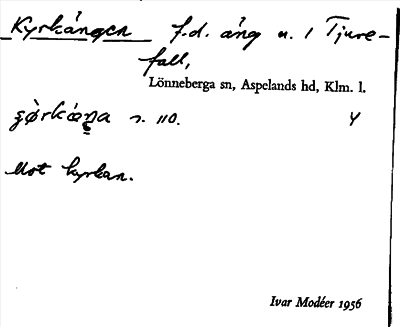 Kyrkängen f.d. äng u. 1 Tjure-
fall,
Lönneberga sn, Aspelands hd, Klm. l.
s. 110. 4
Mot kyrkan.
Ivar Modéer 1956